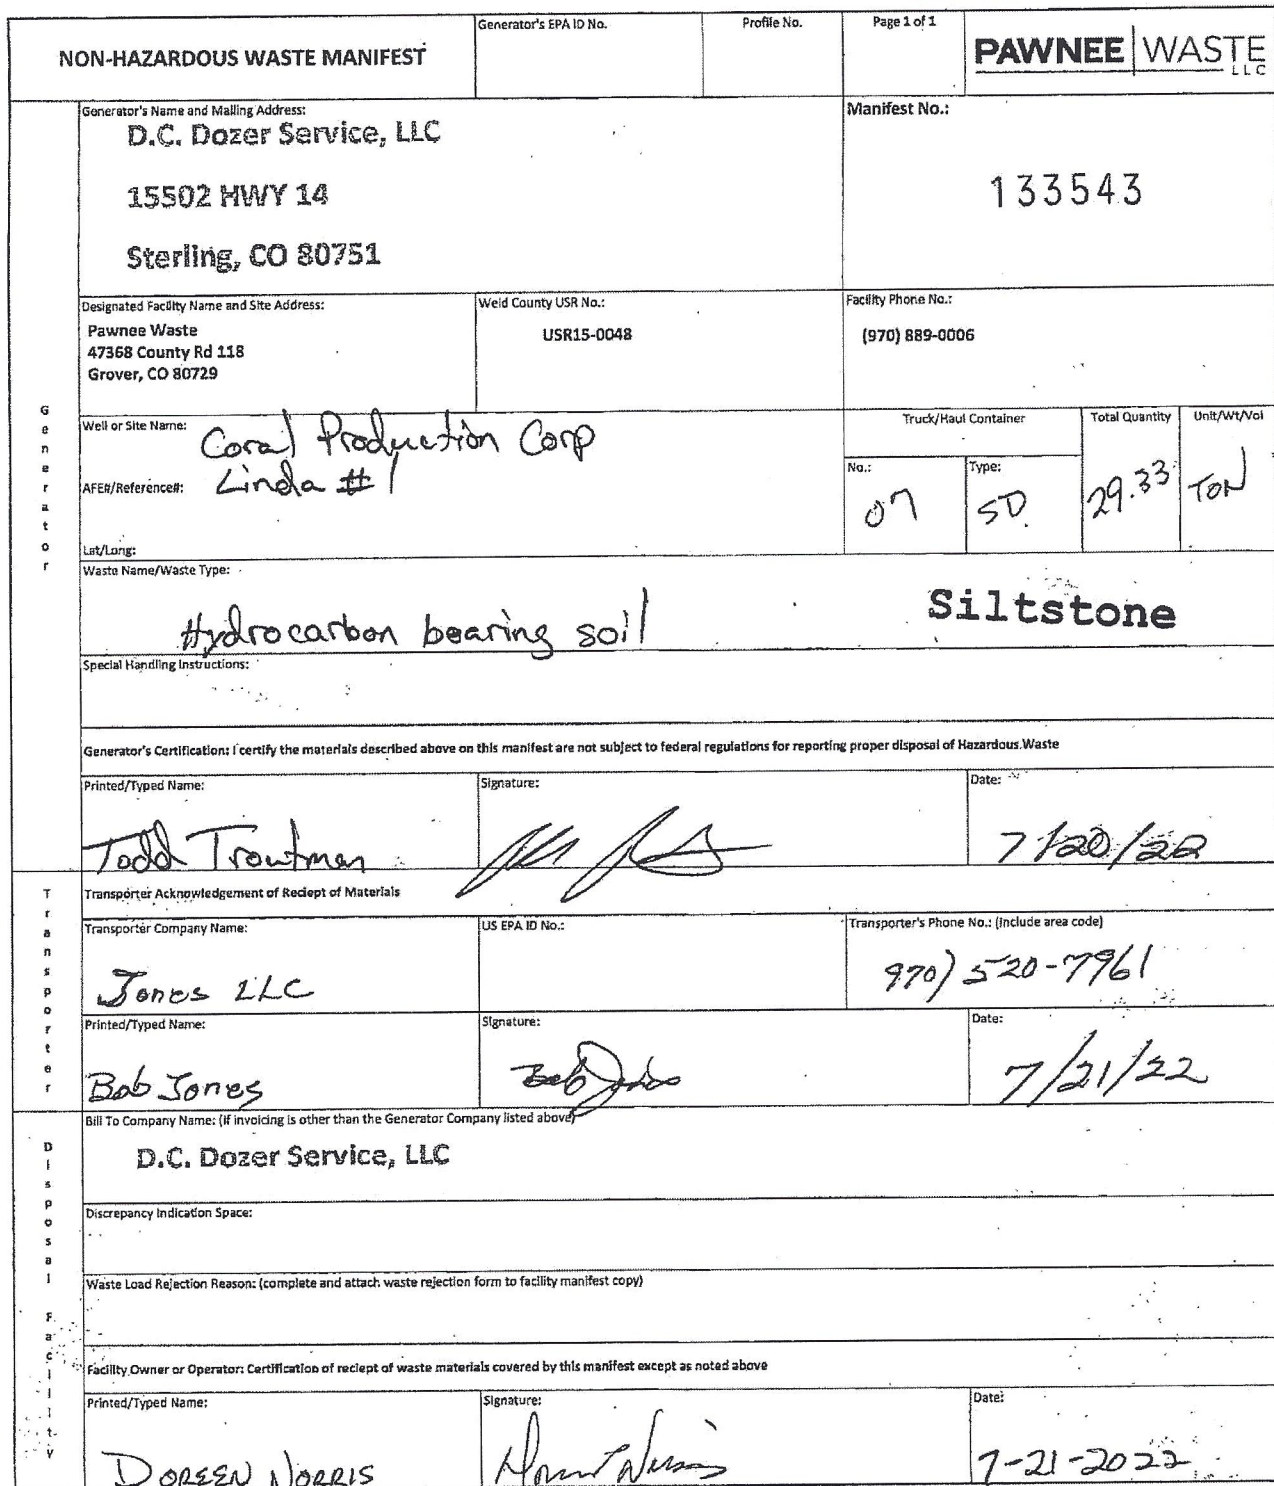 NON-HAZARDOUS WASTE MANIFEST
Generator's EPA ID No.
Profile No.
Page 1 of 1
PAWNEE WASTE
LLC
Generator's Name and Mailing Address:
D.C. Dozer Service, LLC
15502 HWY 14
Sterling, CO 80751
Manifest No.:
133543
Designated Facility Name and Site Address:
Pawnee Waste
47368 County Rd 118
Grover, CO 80729
Weld County USR No.:
USR15-0048
Facility Phone No.:
(970) 889-0006
Generator
Well or Site Name: Coral Production Corp
AFE#/Reference#: Linda #1
Lat/Long:
Truck/Haul Container
No.:
07
Type:
SD
Total Quantity
29.33
Unit/Wt/Vol
TON
Waste Name/Waste Type:
Hydrocarbon bearing soil
Siltstone
Special Handling Instructions:
Generator's Certification: I certify the materials described above on this manifest are not subject to federal regulations for reporting proper disposal of Hazardous Waste
Printed/Typed Name:
Todd Troutman
Signature:
Date:
7/20/22
Transporter
Transporter Acknowledgement of Reciept of Materials
Transporter Company Name:
Jones LLC
US EPA ID No.:
Transporter's Phone No.: (include area code)
970) 520-7961
Printed/Typed Name:
Bob Jones
Signature:
Bob Jones
Date:
7/21/22
Disposal Facility
Bill To Company Name: (if invoicing is other than the Generator Company listed above)
D.C. Dozer Service, LLC
Discrepancy Indication Space:
Waste Load Rejection Reason: (complete and attach waste rejection form to facility manifest copy)
Facility Owner or Operator: Certification of reciept of waste materials covered by this manifest except as noted above
Printed/Typed Name:
DOREEN NORRIS
Signature:
Date:
7-21-2022